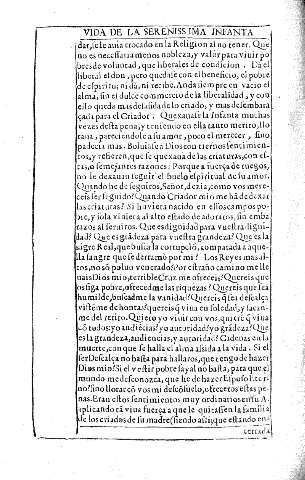 VIDA DE LA SERENISSIMA INFANTA
dar, se le auia trocado en la Religion al no tener. Que
no es necessaria menos nobleza, y valor para viuir po
bres de voluntad, que liberales de condicion. Da el
liberal el don, pero quedase con el beneficio, el pobre
de espiritu; ni da, ni recibe. Anda siempre en vacio el
alma, sin el dulce comercio de la liberalidad, y con
ello queda mas desasida de lo criado, y mas desembara
çada para el Criador. Quexauase la Infanta muchas
vezes desta pena, y teniendo en ella tanto merito, llo
raua, pareciendole a su amor, poco el merecer, sino
padecia mas. Boluiase a Dios con tiernos sentimien-
tos, y refieren, que se quexaua de las criaturas, con es-
tas, o semejantes razones: Porque a fuerça de ruegos,
no le dexauan seguir el buelo espiritual de su amor.
Quando he de seguiros, Señor, dezia, como vos mere-
ceis ser seguido? Quando Criador mio me hā de dexar
las criaturas? Si huviera nacido en essos campos po-
bre, y sola viniera al alto estado de adoraros, sin emba
razos al seruiros. Que es dignidad para vuestra digni-
dad? Que es grādeza para vuestra grandeza? Que es la
sāgre Real, que buela la corrupciō, comparada a aque-
lla sangre que se derramó por mi? Los Reyes mas al-
tos, no só poluo venerado? Por estraño camino me lle
uais Dios mio, terrible Cruz me ofreceis; Quereis que
os siga pobre, y ofrecedme las riquezas? Quereis que sea
humilde, y buscadme la vanidad? Quereis q̄ sea descalça
y visté me de honras? quereis q̄ viua en soledad, y sacan-
me del retiro. Quiero yo viuir con vos, quiere q̄ viua
có todos; yo audiēcias? yo autoridad? yo grādeza? Que
es la grandeza, audiencias, y autoridad? Cadenas en la
muerte, con que se halla el alma asida a la vida. Si el
ser Descalça no basta para hallaros, que tengo de hazer
Dios mio? Si el vestir pobre sayal no basta, para que el
mundo me desconozca, que he de hazer Esposo Eter-
no? sino llorar có vos mi desconsuelo, ofreceros estas pe-
nas. Eran estos sentimientos muy ordinarios en su A.
suplicando cō viua fuerça a que le quitassen la familia
de los criados de su madre, siendo assi, que estando en-
cerrada